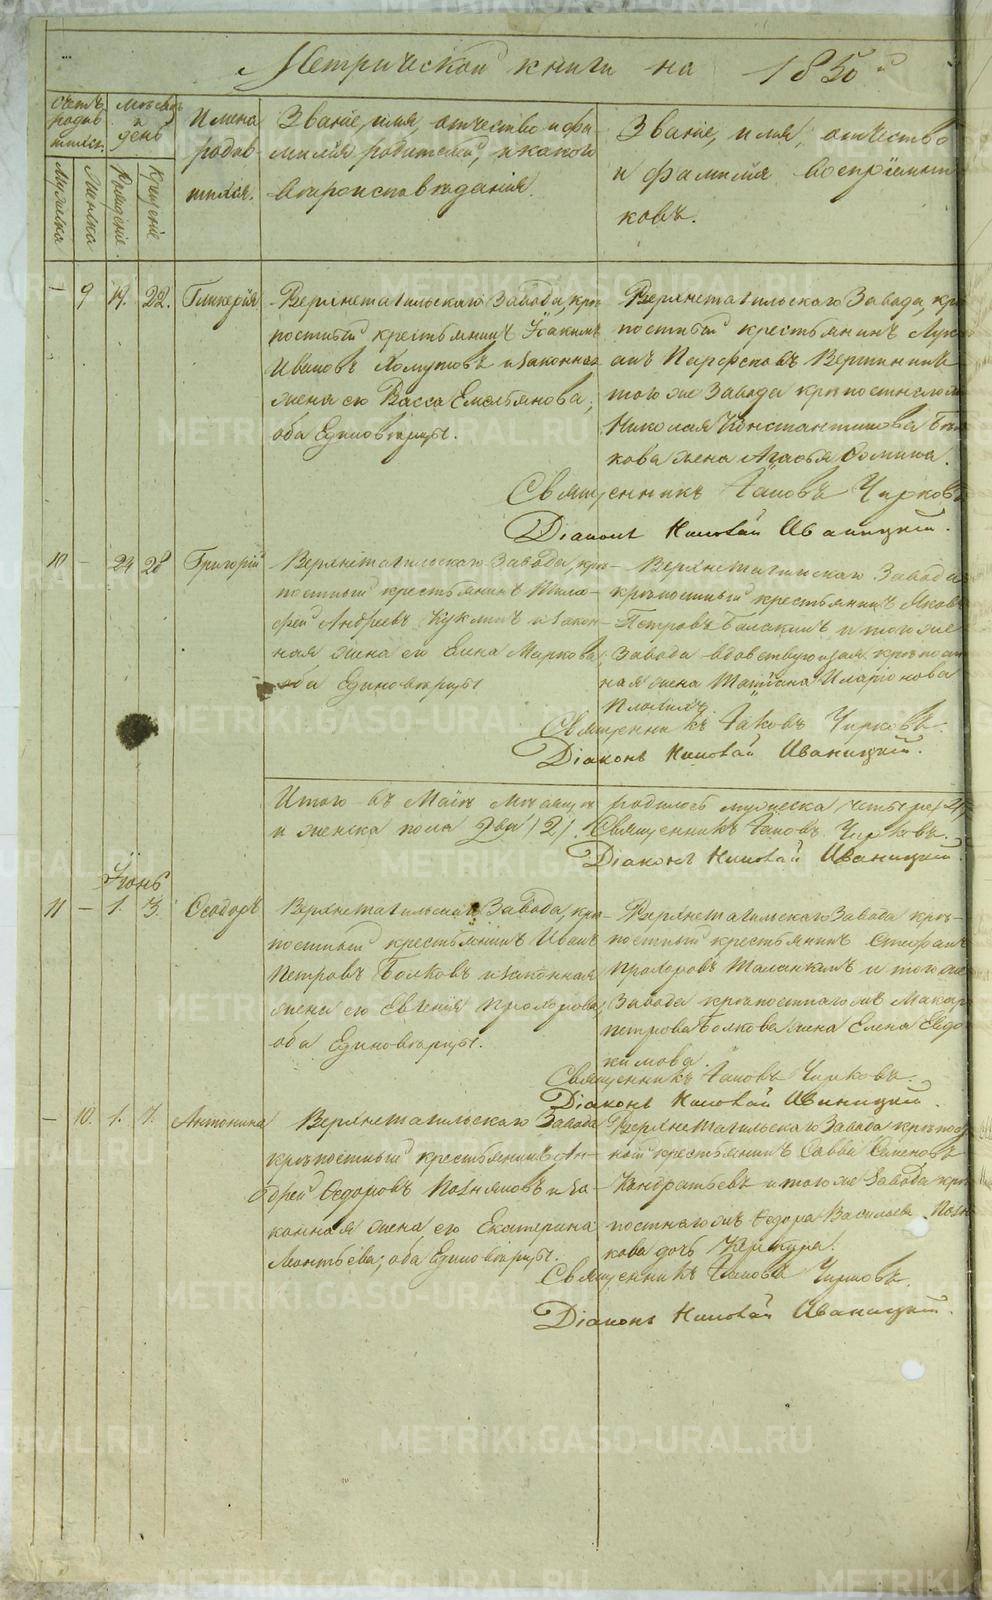 Метрической книги на 1850й
Счетъ родив
шихся.
Мужеска
Женска
Месяцъ и день
Рожденіе.
Крещеніе
Имена родив
шихся.
Званіе, имя, отчество и фа
милія родителей, и какой
вѣроисповѣданія.
Званіе, имя, отчество
и фамилія воспріемни
ковъ.
- 9 19. 22. Гликерія
Верхнетагильскаго Завода, крѣ
постный крестьянинъ Іоакимъ
Ивановъ Хомутовъ и законная
жена его Васса Емельянова,
оба Единовѣрцы.
Верхнетагильскаго Завода, кр
постный крестьянинъ Лук
Парфеновъ Вершининъ
того же Завода крѣпостнаго
Николая Константинова
кова жена Агафья Фомина.
Священникъ Іаковъ Чирковъ
Діаконъ Николай Иваницкій.
10 - 24 28 Григорій
Верхнетагильскаго Завода, крѣ-
постный крестьянинъ Тимо-
фей Андреевъ Куклинъ и закон-
ная жена его Елена Маркова,
оба Единовѣрцы
Верхнетагильскаго Завода
крѣпостный крестьянинъ Яковъ
Петровъ Балакинъ и того же
Завода вдовствующая крѣпост
ная жена Татіана Иларіонова
Священникъ Іаковъ Чирковъ.
Діаконъ Николай Иваницкій.
Итого въ Маіѣ Месяцѣ родилось мужеска четыре /4/
и женска пола два /2/. Священникъ Іаковъ Чирковъ.
Діаконъ Николай Иваницкій.
Іюнь
11 - 1. 3. Ѳеодоръ
Верхнетагильскаго Завода, крѣ-
постный крестьянинъ Иванъ
Петровъ Волковъ и законная
жена его Евгенія Прохорова,
оба Единовѣрцы.
Верхнетагильскаго Завода крѣ-
постный крестьянинъ Стефанъ
Прохоровъ Таланкинъ и того же
Завода крѣпостнаго Макар
Петрова Волкова жена Елена Евдо
кимова.
Священникъ Іаковъ Чирковъ.
Діаконъ Николай Иваницкій.
- 10. 1. 7. Антонина
Верхнетагильскаго Завода
крѣпостный крестьянинъ Ан-
дрей Ѳедоровъ Позняковъ и за-
конная жена его Екатерина
Леонтьева, оба Единовѣрцы.
Верхнетагильскаго Завода крѣпост
ной крестьянинъ Савва Семеновъ
Кондратьевъ и того же Завода крѣ
постнаго Ѳедора Васильева Позн
кова дочь
Священникъ Іаковъ Чирковъ.
Діаконъ Николай Иваницкій.
METRIKI.GASO-URAL.RU